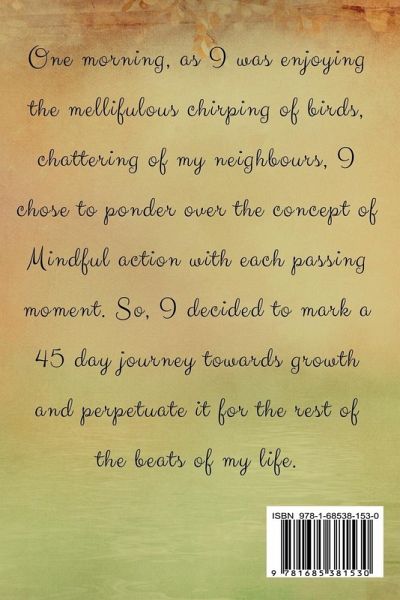 One morning, as I was enjoying
the mellifulous chirping of birds,
chattering of my neighbours, I
chose to ponder over the concept of
Mindful action with each passing
moment. So, I decided to mark a
45 day journey towards growth
and perpetuate it for the rest of
the beats of my life.
ISBN 978-1-68538-153-0
9 781685 381530